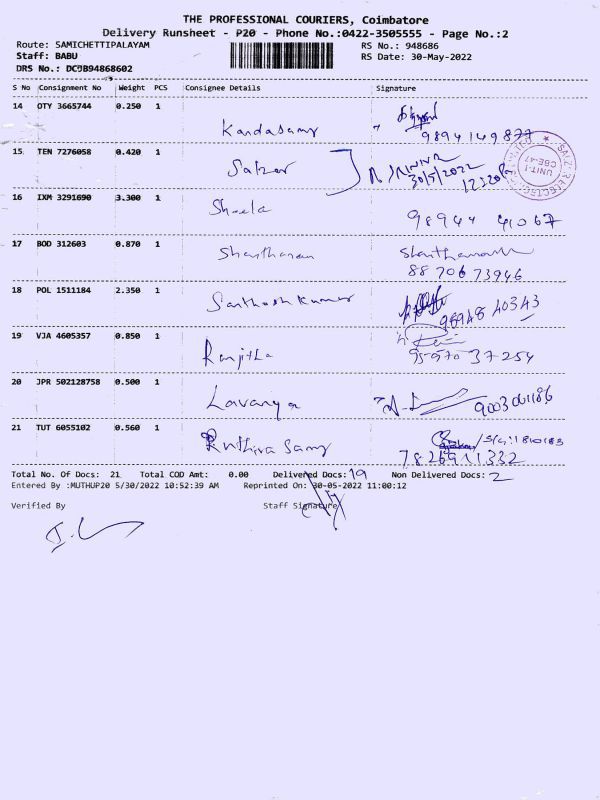 THE PROFESSIONAL COURIERS, Coimbatore
Delivery Runsheet - P20 - Phone No.:0422-3505555 - Page No.:2
Route: SAMICHETTIPALAYAM RS No.: 948686
Staff: BABU RS Date: 30-May-2022
DRS No.: DCJB94868602
S No Consignment No Weight PCS Consignee Details Signature
14 OTY 3665744 0.250 1
Kandasamy 9894149877
15 TEN 7276058 0.420 1
Salzer 30/5/2022
UNIT-I CBE-47
16 IXM 3291690 3.300 1
Sheela 98944 41067
17 BOD 312603 0.870 1
Shantharam
88706 73946
18 POL 1511184 2.350 1
Santhosh Kumar 98948 40343
19 VJA 4605357 0.850 1
Ranjitha 95970 37254
20 JPR 502128758 0.500 1
Lavanya 9003061186
21 TUT 6055102 0.560 1
Ruthira Samy
7826911332
Total No. Of Docs: 21 Total COD Amt: 0.00 Delivered Docs: 19 Non Delivered Docs: 2
Entered By :MUTHUP20 5/30/2022 10:52:39 AM Reprinted On: 30-05-2022 11:00:12
Verified By Staff Signature